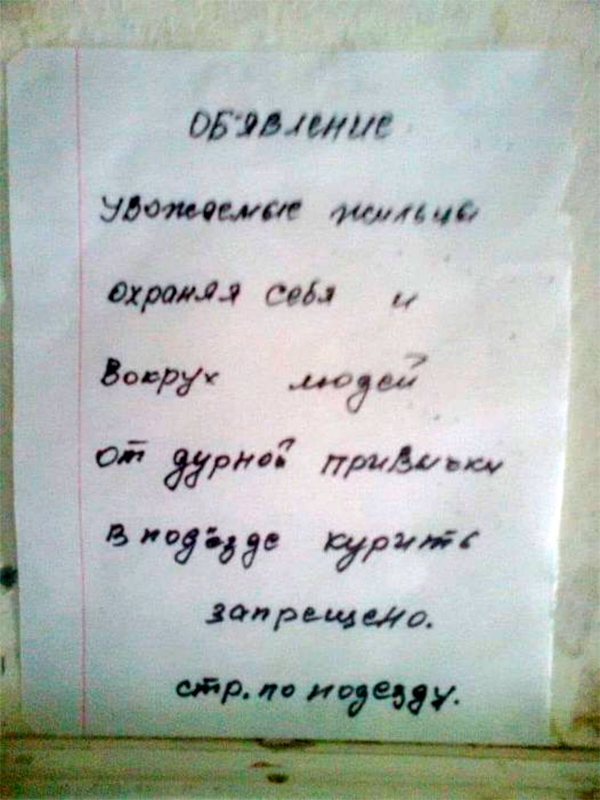 ОБ'ЯВЛЕНИЕ
Увождемые жильцы
охраняя себя и
Вокрух людей
от дурной привычки
в подъезде курить
запрещено.
стр. по подезду.